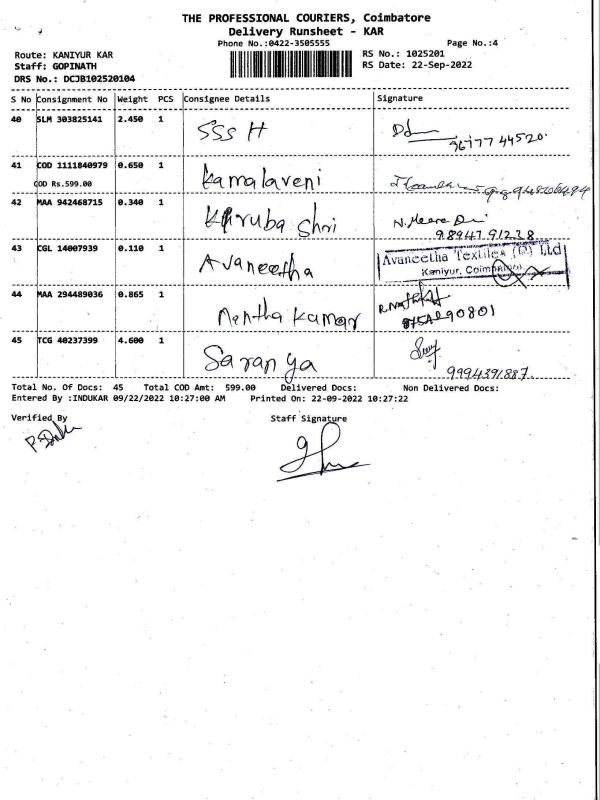 THE PROFESSIONAL COURIERS, Coimbatore
Delivery Runsheet - KAR
Phone No.:0422-3505555 Page No.:4
Route: KANIYUR KAR RS No.: 1025201
Staff: GOPINATH RS Date: 22-Sep-2022
DRS No.: DCJB102520104
S No Consignment No Weight PCS Consignee Details Signature
40 SLM 303825141 2.450 1 SSS H
96777 44520
41 COD 1111840979 0.650 1 Kamalaveni
COD Rs.599.00
42 MAA 942468715 0.340 1 Kiruba Shri
98947 91238
43 CGL 14007939 0.110 1 Avaneetha Avaneetha Textiles (P) Ltd
Kaniyur, Coimbatore
44 MAA 294489036 0.865 1 Kumar
45 TCG 40237399 4.600 1 Saranya
9994391887
Total No. Of Docs: 45 Total COD Amt: 599.00 Delivered Docs: Non Delivered Docs:
Entered By :INDUKAR 09/22/2022 10:27:00 AM Printed On: 22-09-2022 10:27:22
Verified By Staff Signature